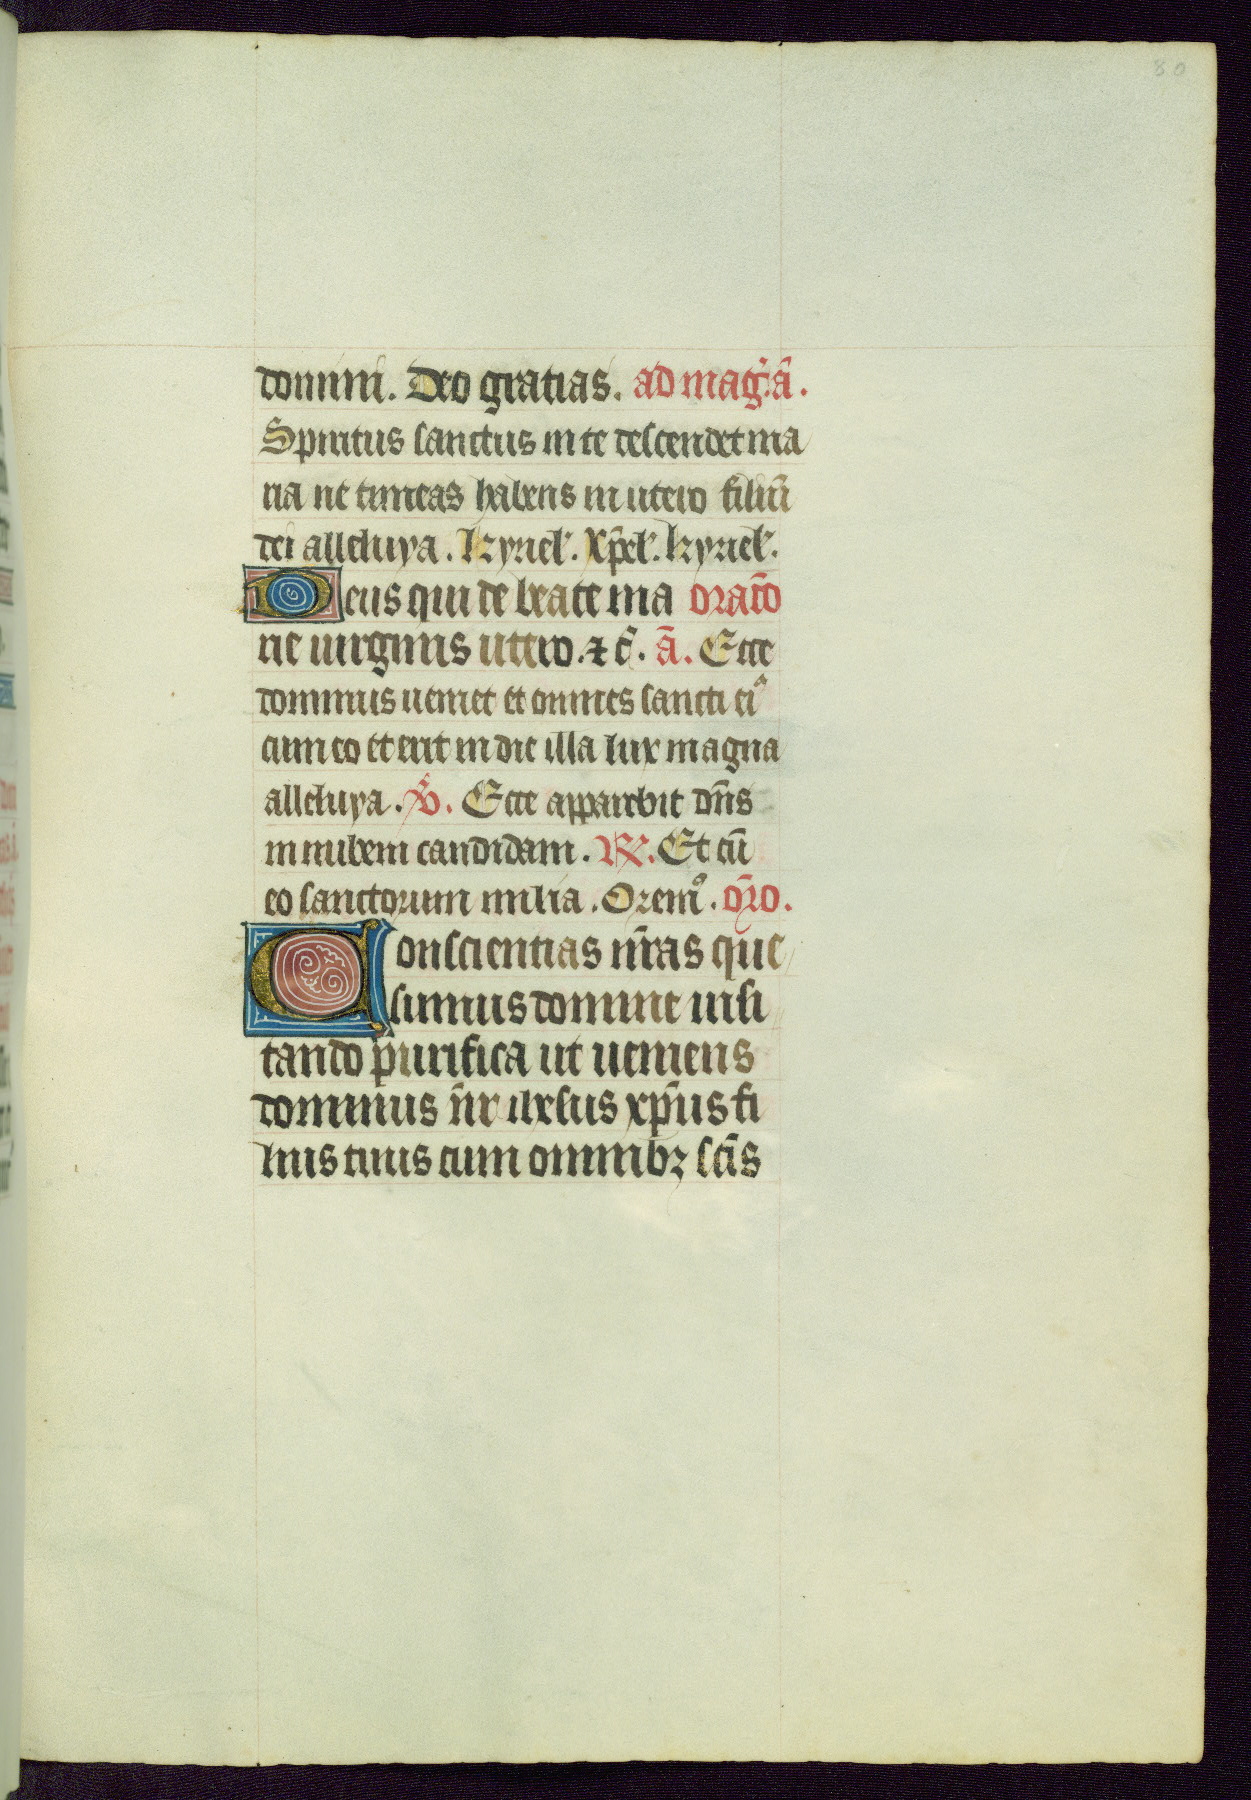 80
domini. Deo gratias. ad mag̃. ã.
Spiritus sanctus in te descendet ma
ria ne timeas habens in utero filiũ
dei alleluya. kyriel'. xp̃el'. kyriel'.
Deus qui de beate ma orat̃o
rie uirginis utero. ⁊ c̃. ã. Ecce
dominus ueniet et omnes sancti ei᷒
cum eo et erit in die illa lux magna
alleluya. ℣. Ecce apparebit dñs
in nubem candidam. ℟. Et cũ
eo sanctorum milia. Orem᷒. or̃o.
Conscientias nr̃as que
sumus domine uisi
tando purifica ut ueniens
dominus nr̃ ihesus xp̃us fi
lius tuus cum omnibꝫ sc̃is